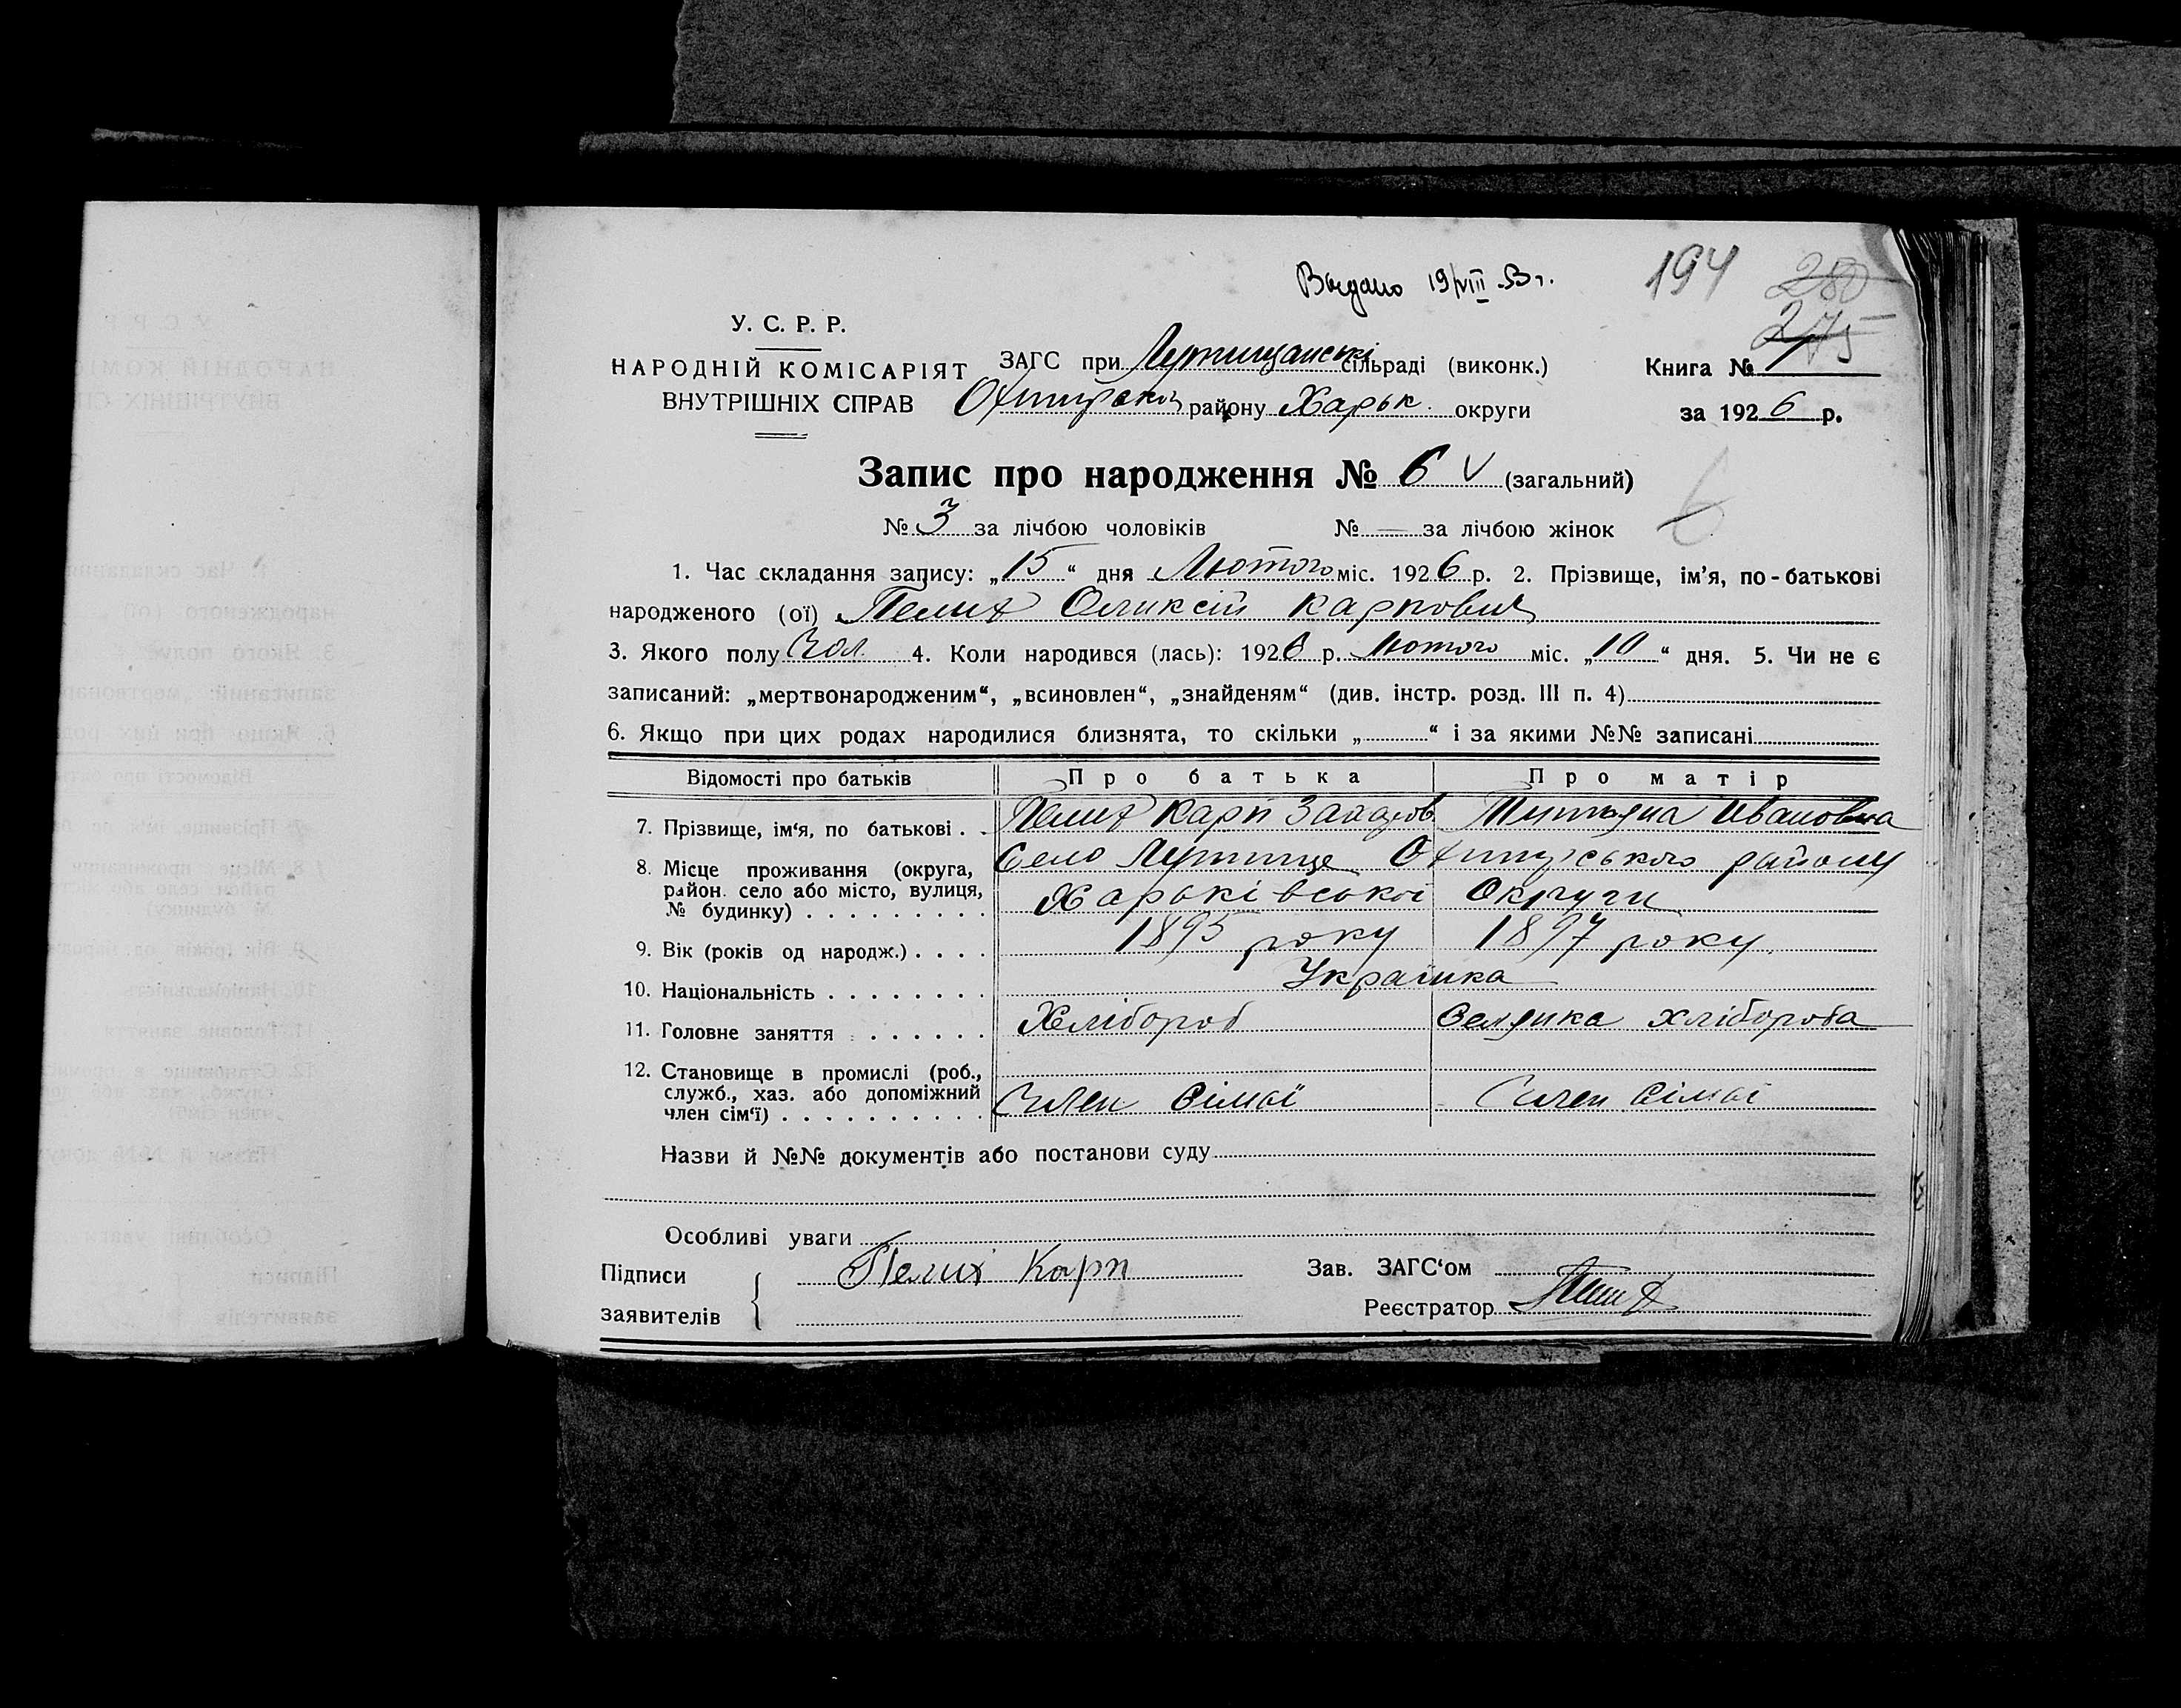 Выдано 19/VIII 53 г.
194
280
275
У. С. Р. Р.
НАРОДНІЙ КОМІСАРІЯТ
ВНУТРІШНІХ СПРАВ
ЗАГС при Лутищанські сільраді (виконк.)
Охтирської району Харьк. округи
Книга №
за 1926 р.
Запис про народження № 6 V (загальний)
6
№ 3 за лічбою чоловіків № — за лічбою жінок
1. Час складання запису: „15“ дня Лютого міс. 1926 р. 2. Прізвище, ім’я, по-батькові
народженого (ої) Пелих Оликсій Карпович
3. Якого полу Чол. 4. Коли народився (лась): 1926 р. Лютого міс. „10“ дня. 5. Чи не є
записаний: „мертвонародженим“, „всиновлен“, „знайденям“ (див. інстр. розд. III п. 4)
6. Якщо при цих родах народилися близнята, то скільки „ “ і за якими №№ записані
Відомості про батьків Про батька Про матір
7. Прізвище, ім‘я, по батькові . Пелих Карп Захаров. Титьяна Ивановна
8. Місце проживання (округа, район. село або місто, вулиця, № будинку) . . . . . . . . .
Село Лутище Охтирського району
Харьківської Округи
9. Вік (років од народж.) . . . . 1895 року 1897 року.
10. Національність . . . . . . . . Украінка
11. Головне заняття . . . . . . Хлібороб Селянка хлібороба
12. Становище в промислі (роб.,
служб., хаз. або допоміжний
член сім‘ї) . . . . . . . . . . Член сімьї Член сімьі
Назви й №№ документів або постанови суду
Особливі уваги
Підписи
заявителів
Пелих Карп
Зав. ЗАГС‘ом
Реєстратор